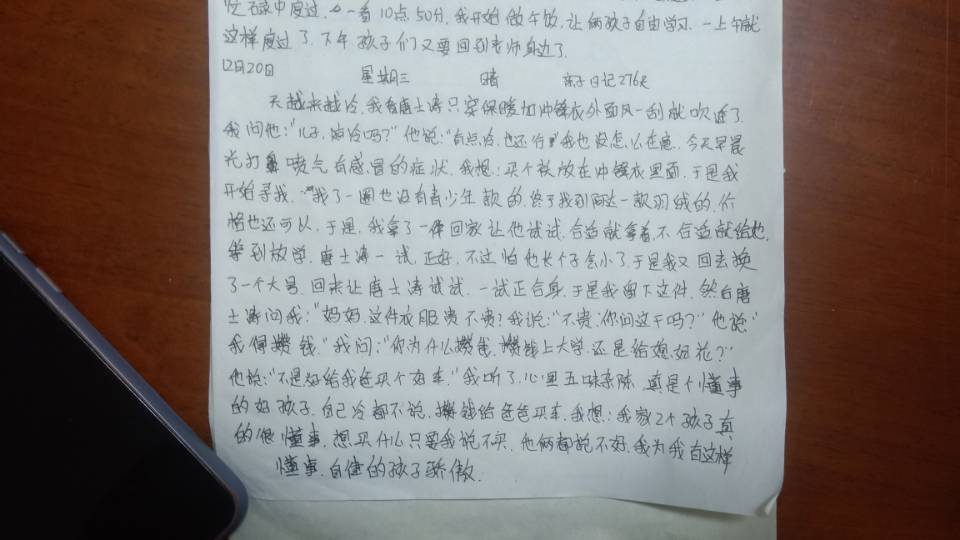 忆云录中度过，一看10点50分，我开始做午饭，让俩孩子自由学习．一上午就
这样度过了．下午孩子们又要回到老师身边了．
12月20日 星期三 晴 亲子日记276天
天越来越冷，我看唐士涛只穿保暖加冲锋衣外面风一刮就吹进了．
我问他："儿子，冷吗？"他说："有点冷，也还行"我也没怎么在意，今天早晨
打鼻喷气有感冒的症状．我想：买个放在冲锋衣里面，于是我
开始寻找．找了一圈也没有青少年款的．终于找到一款羽绒的，价
格也还可以，于是，我拿了一件回家让他试试，合适就拿着，不合适就给她，
等到放学，唐士涛一试，正好，不过怕他长个子会小了，于是我又回去换
了一个大号，回来让唐士涛试试．一试正合身，于是我留下这件．然后唐
士涛问我："妈妈，这件衣服贵不贵？我说："不贵，你问这干吗？"他说："
我得攒钱．"我问："你为什么攒钱，攒钱上大学，还是给媳妇花？"
他说："不是，好给我爸买个好车．"我听了，心里五味杂陈，真是个懂事
的好孩子，自己冷都不说，攒钱给爸爸买车．我想：我家2个孩子真
的很懂事，想买什么只要我说不买，他俩都说不好，我为我有这样
懂事、自律的孩子骄傲．